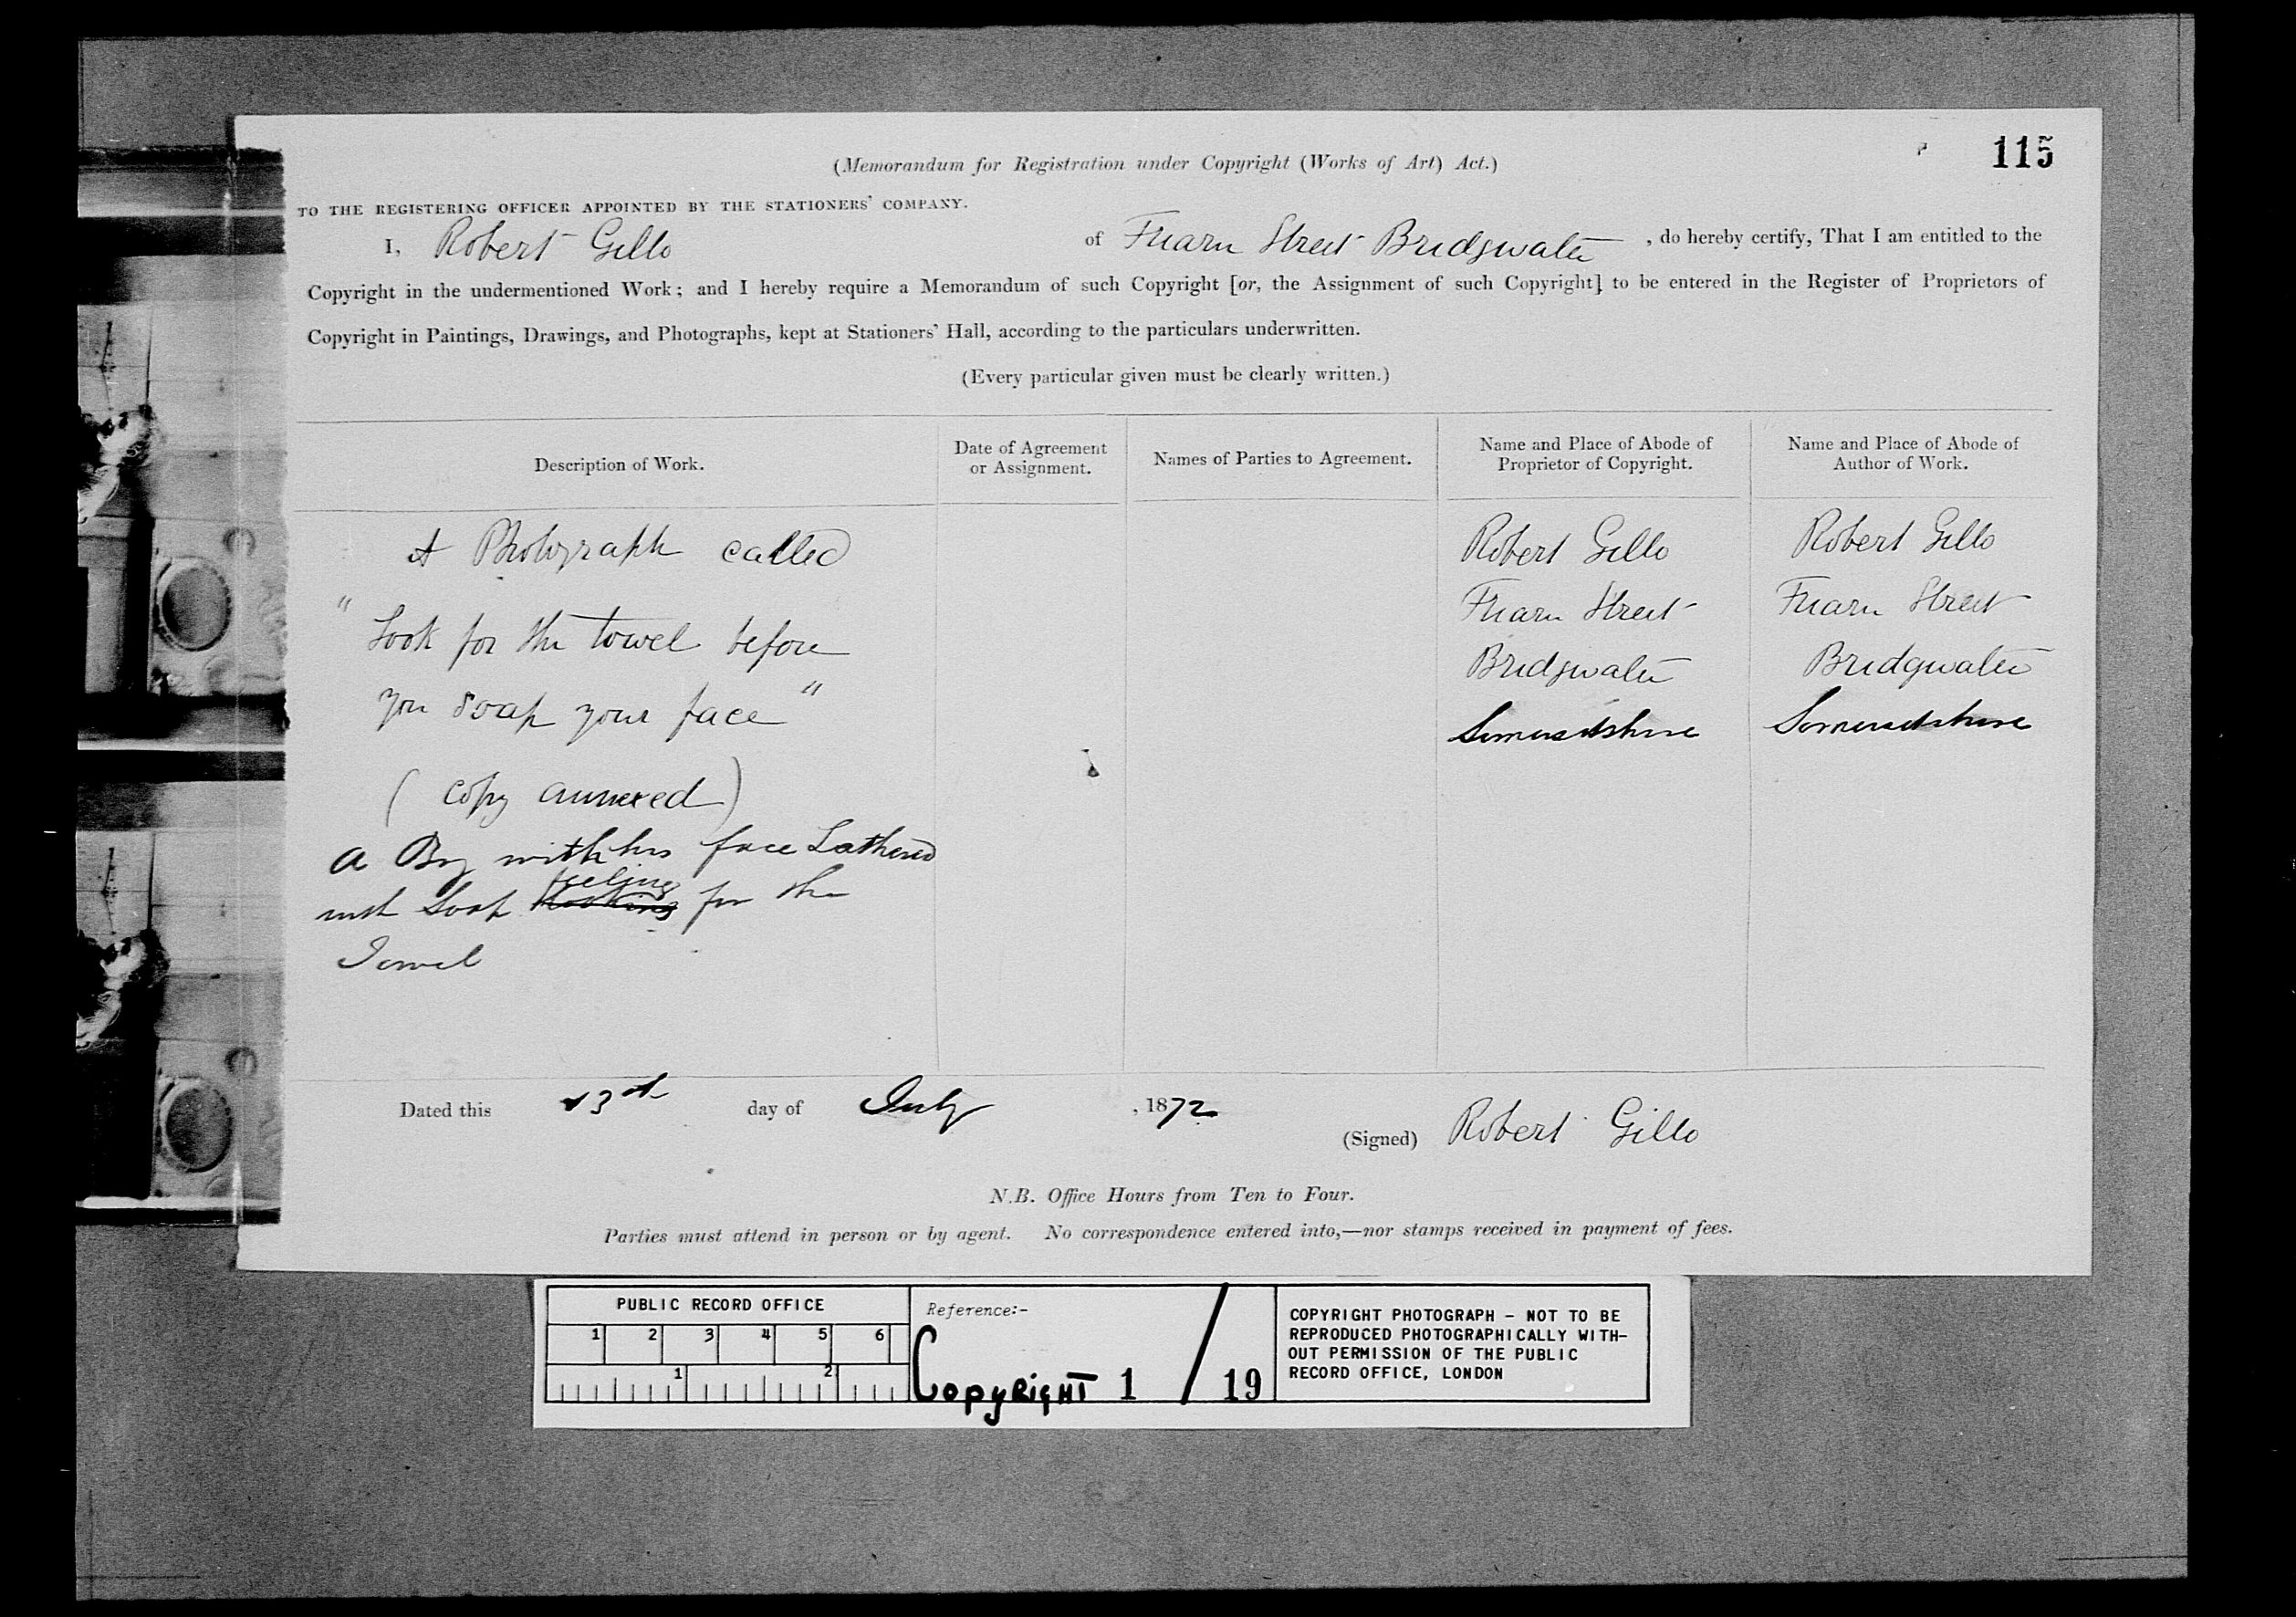 115
(Memorandum for Registration under Copyright (Works of Art) Act.)
TO THE REGISTERING OFFICER APPOINTED BY THE STATIONERS' COMPANY.
I, Robert Gillo of Friarn Street Bridgwater, do hereby certify, That I am entitled to the
Copyright in the undermentioned Work; and I hereby require a Memorandum of such Copyright [or, the Assignment of such Copyright] to be entered in the Register of Proprietors of
Copyright in Paintings, Drawings, and Photographs, kept at Stationers' Hall, according to the particulars underwritten.
(Every particular given must be clearly written.)
Description of Work.
Date of Agreement
or Assignment.
Names of Parties to Agreement.
Name and Place of Abode of
Proprietor of Copyright.
Name and Place of Abode of
Author of Work.
A Photograph called
"Look for the towel before
you soap your face"
(copy annexed)
a Boy with his face Lathered
with Soap looking feeling for the
Towel
Robert Gillo
Friarn Street
Bridgwater
Somersetshire
Robert Gillo
Friarn Street
Bridgwater
Somersetshire
Dated this 13th day of July, 1872
(Signed) Robert Gillo
N.B. Office Hours from Ten to Four.
Parties must attend in person or by agent. No correspondence entered into,—nor stamps received in payment of fees.
PUBLIC RECORD OFFICE
1 2 3 4 5 6
1 2
Reference:-
Copyright 1 / 19
COPYRIGHT PHOTOGRAPH - NOT TO BE
REPRODUCED PHOTOGRAPHICALLY WITH-
OUT PERMISSION OF THE PUBLIC
RECORD OFFICE, LONDON